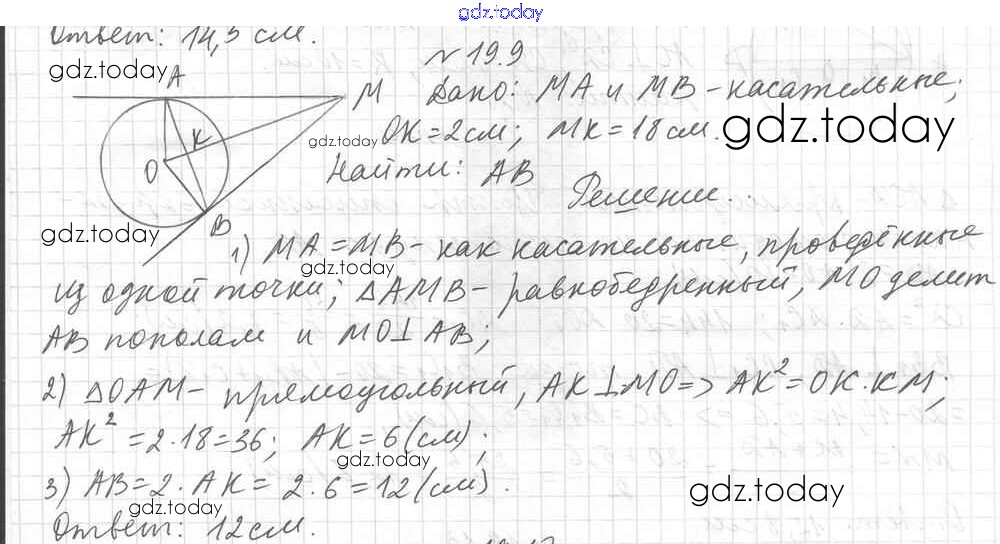 gdz.today
Ответ: 14,5 см.
№ 19.9
gdz.today
A
M
Дано: MA и MB - касательные;
K
O
B
gdz.today
OK = 2 см; MK = 18 см.
gdz.today
Найти: AB
Решение.
gdz.today
1) MA = MB - как касательные, проведённые
gdz.today
из одной точки; △AMB - равнобедренный, MO делит
AB пополам и MO⊥AB;
2) △OAM - прямоугольный, AK⊥MO => AK² = OK·KM;
AK² = 2·18 = 36; AK = 6 (см);
gdz.today
3) AB = 2·AK = 2·6 = 12 (см).
gdz.today
gdz.today
Ответ: 12 см.